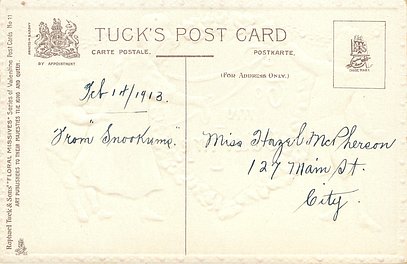 TUCK'S POST CARD
CARTE POSTALE.
POSTKARTE.
BY APPOINTMENT
(FOR ADDRESS ONLY.)
TRADE MARK
Feb 14/1913.
From "Snookums."
Miss Hazel McPherson
127 Main St.
City.
Raphael Tuck & Sons' "FLORAL MISSIVES" Series of Valentine Post Cards No 11
ART PUBLISHERS TO THEIR MAJESTIES THE KING AND QUEEN.